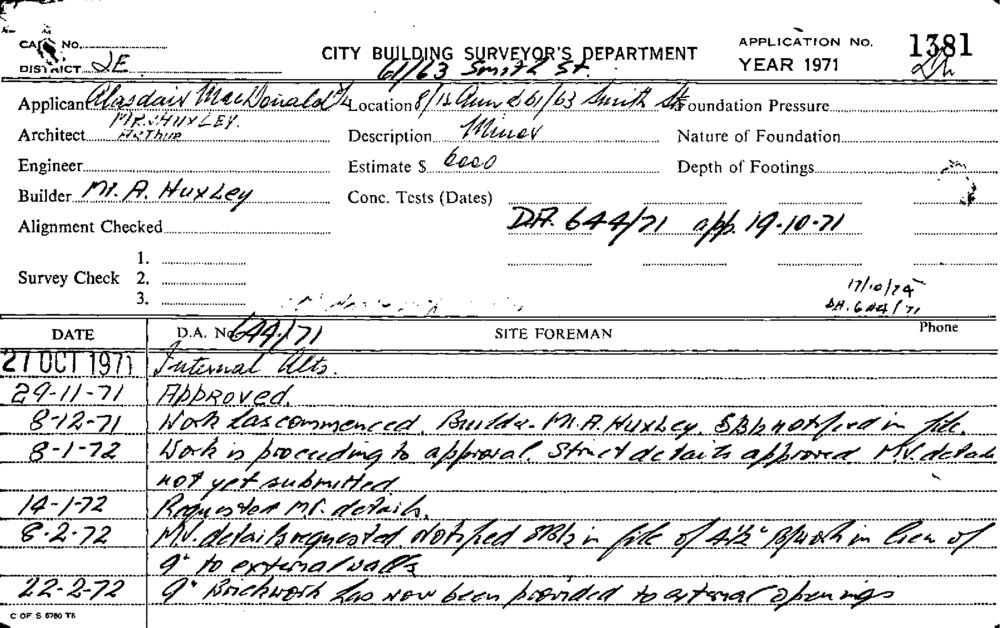 CARD No.
CITY BUILDING SURVEYOR'S DEPARTMENT
APPLICATION No. 1381
DISTRICT 2E
61/63 Smith St.
YEAR 1971
Applicant Alasdair MacDonald
Location 8/12 Ann & 61/63 Smith St
Foundation Pressure
MR. HUXLEY.
Architect ARTHUR
Description Minor
Nature of Foundation
Engineer
Estimate $ 6000
Depth of Footings
Builder Mr. A. HUXLEY
Conc. Tests (Dates)
Alignment Checked
D.A. 644/71 app. 19-10-71
1.
Survey Check 2.
3.
17/10/74
DA. 644/71
DATE
D.A. No 644/71
SITE FOREMAN
Phone
27 OCT 1971 Internal Alts.
29-11-71 Approved.
8-12-71 Work has commenced. Builder- Mr. A. Huxley. notified in file.
8-1-72 Work is proceeding to approval. Struct details approved M.V. details
not yet submitted
14-1-72 Requested M.V. details.
8-2-72 M.V. details requested Notified in file of 4½" B/work in lieu of
9" to external walls
22-2-72 9" Brickwork has now been provided to external openings
C OF S 6760 T8